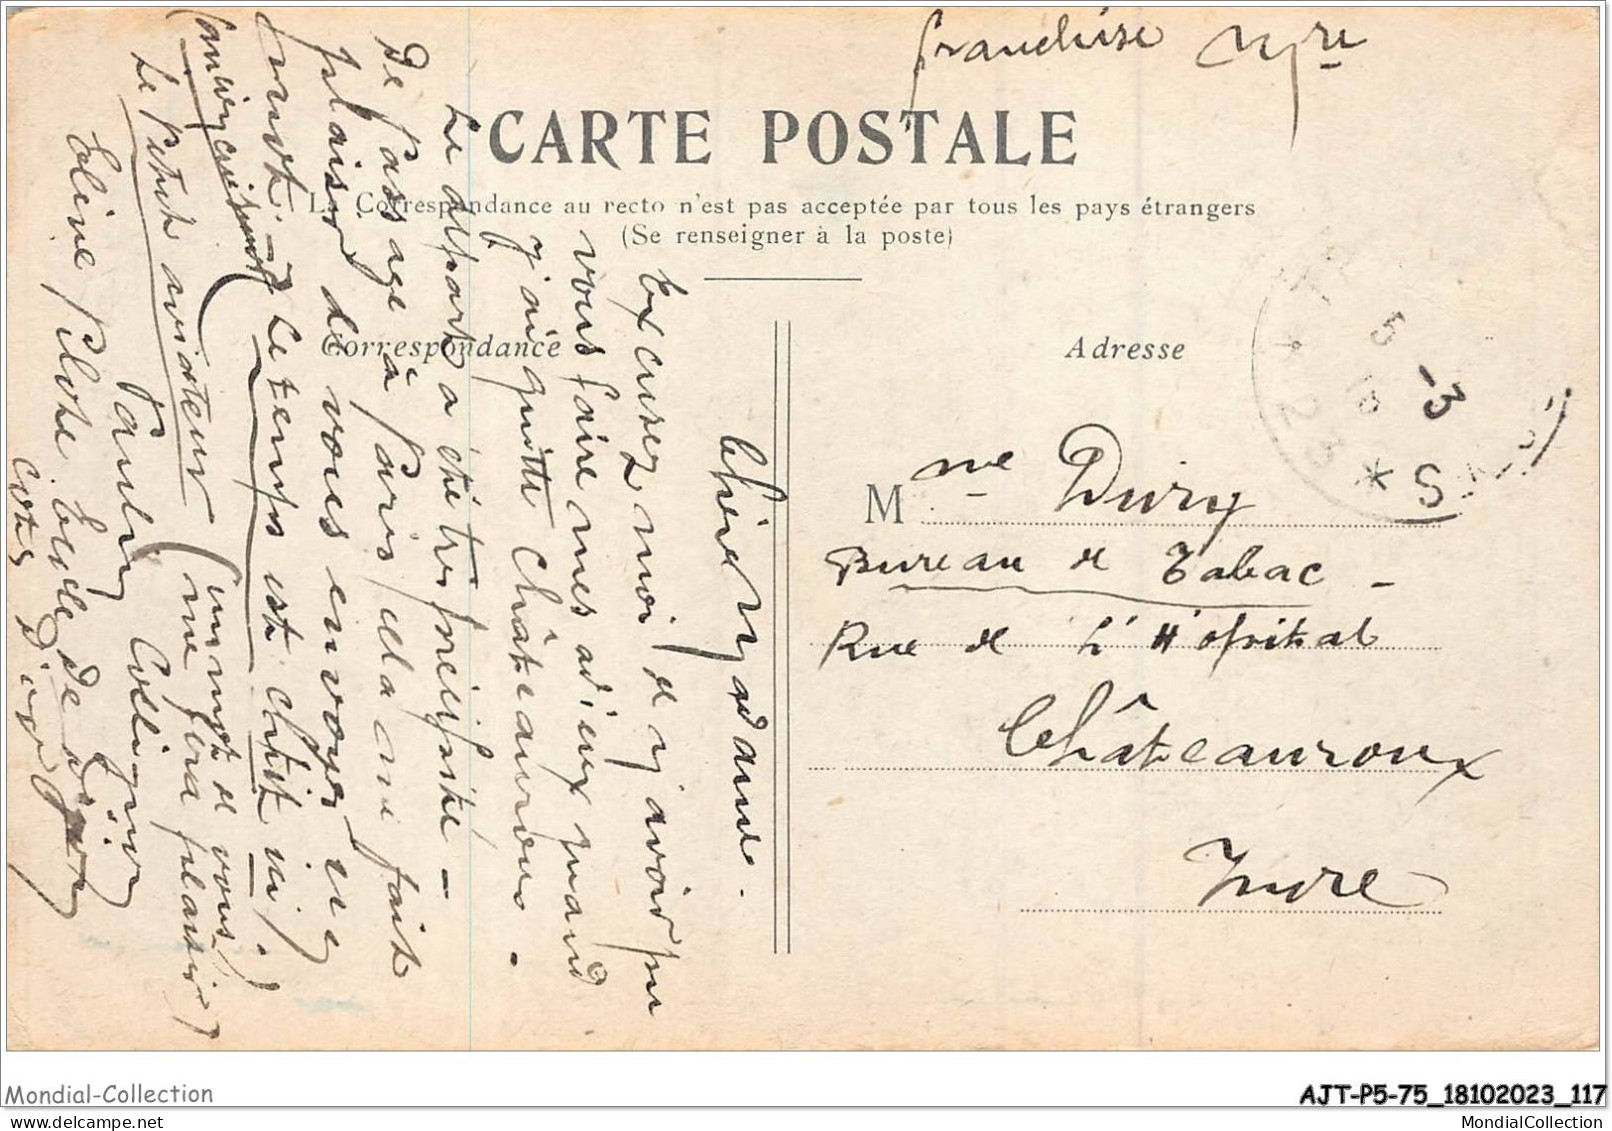 franchise Mre
CARTE POSTALE
La Correspondance au recto n'est pas acceptée par tous les pays étrangers
(Se renseigner à la poste)
Correspondance
Adresse
Chère Madame.
Excusez moi de n'avoir pu
vous faire mes adieux quand
j'ai quitté Châteauroux.
Le départ a été très précipité –
De passage à Paris cela me fait
plaisir de vous envoyer un
mot. – Le temps est
Le Petit aviateur (un mot de vous
me fera plaisir)
Paulin
Elève Pilote Ecole de Dijon
Côte d'or
Mme Dury
Bureau de Tabac –
Rue de L'Hôpital
Châteauroux
Indre
5 -3
Mondial-Collection
AJT-P5-75_18102023_117
www.mondial-collection.com
MondialCollection